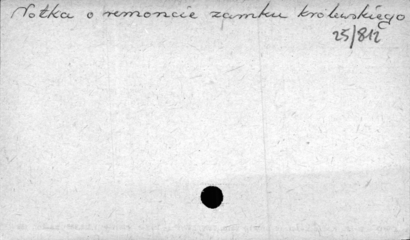 Notka o remoncie zamku królewskiego
25/812